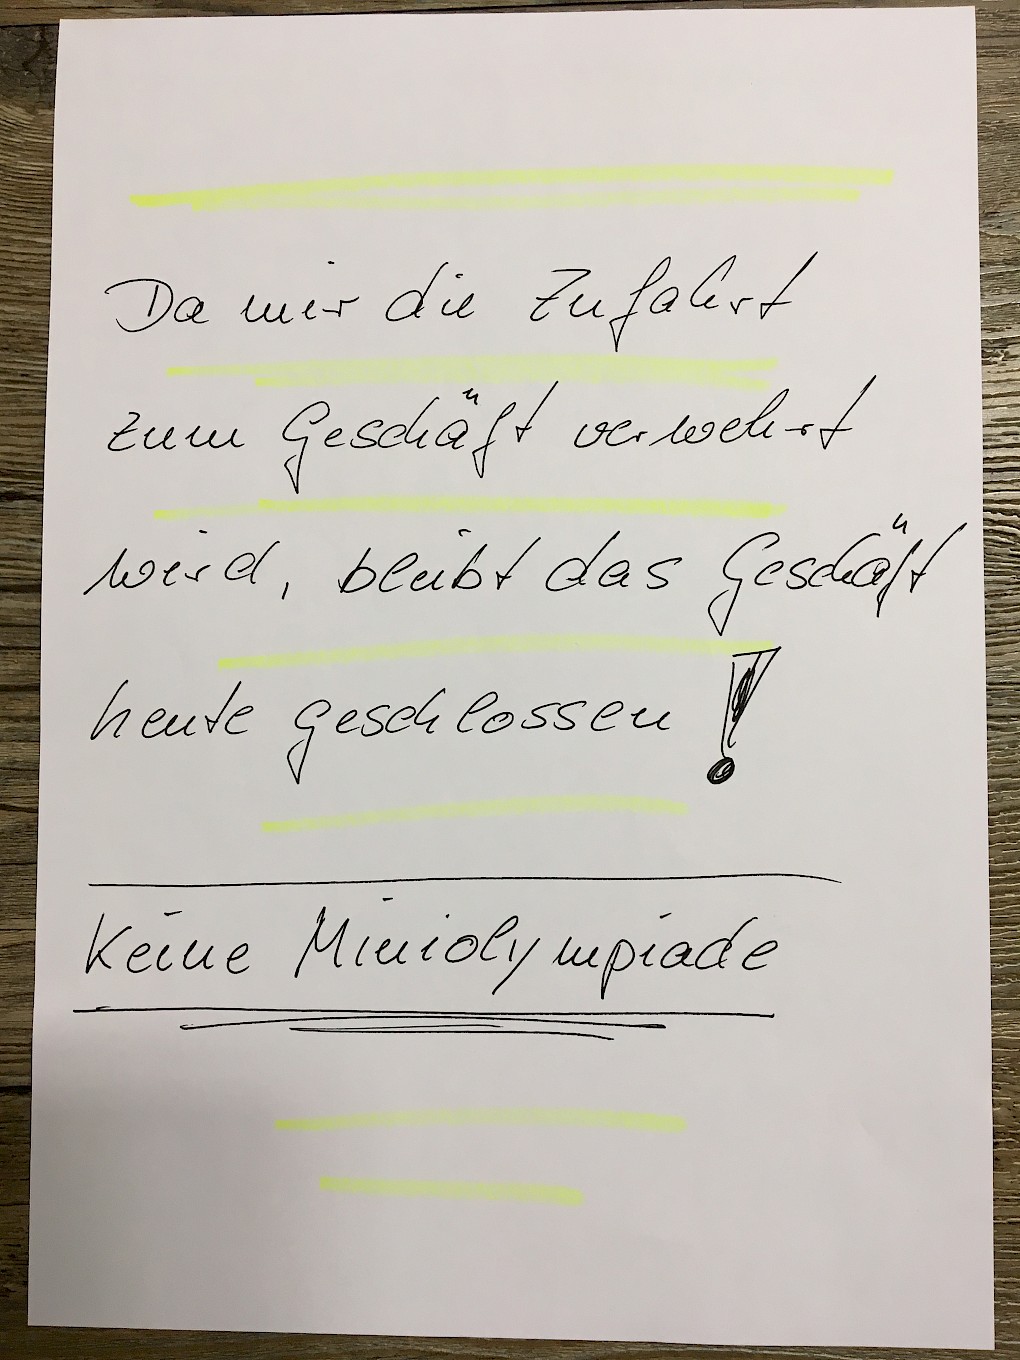 Da mir die Zufahrt
zum Geschäft verwehrt
wird, bleibt das Geschäft
heute geschlossen!
Keine Miniolympiade